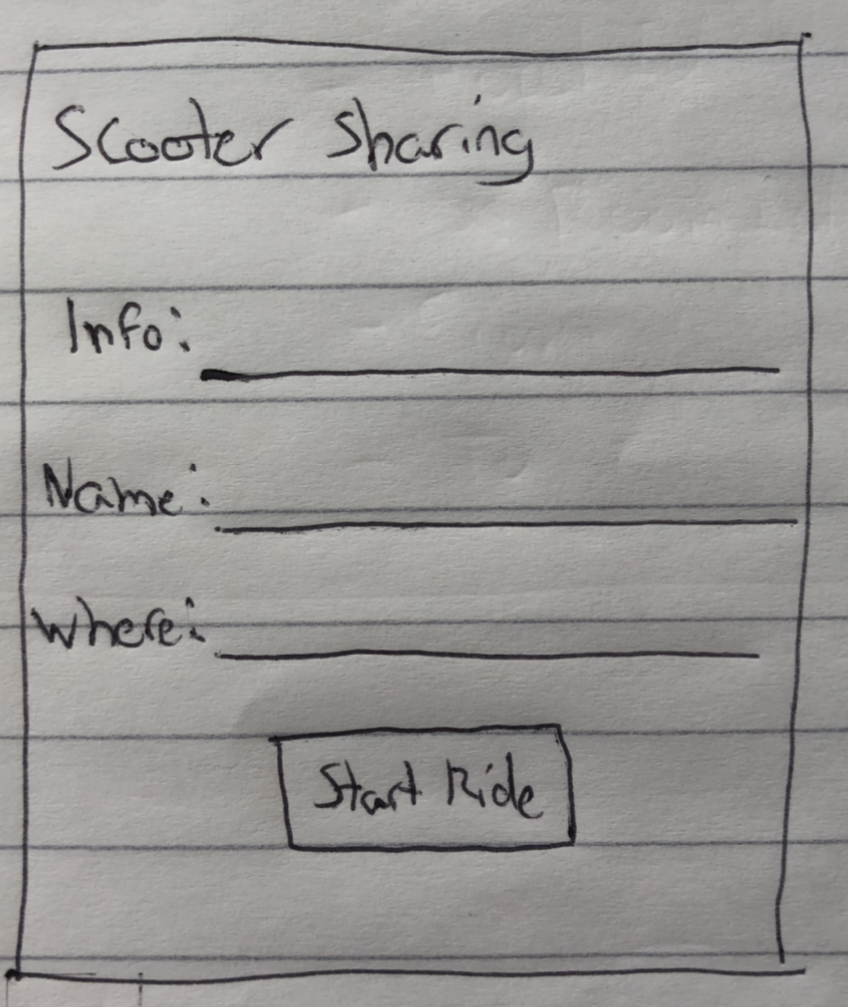 Scooter Sharing
Info:
Name:
Where:
Start Ride